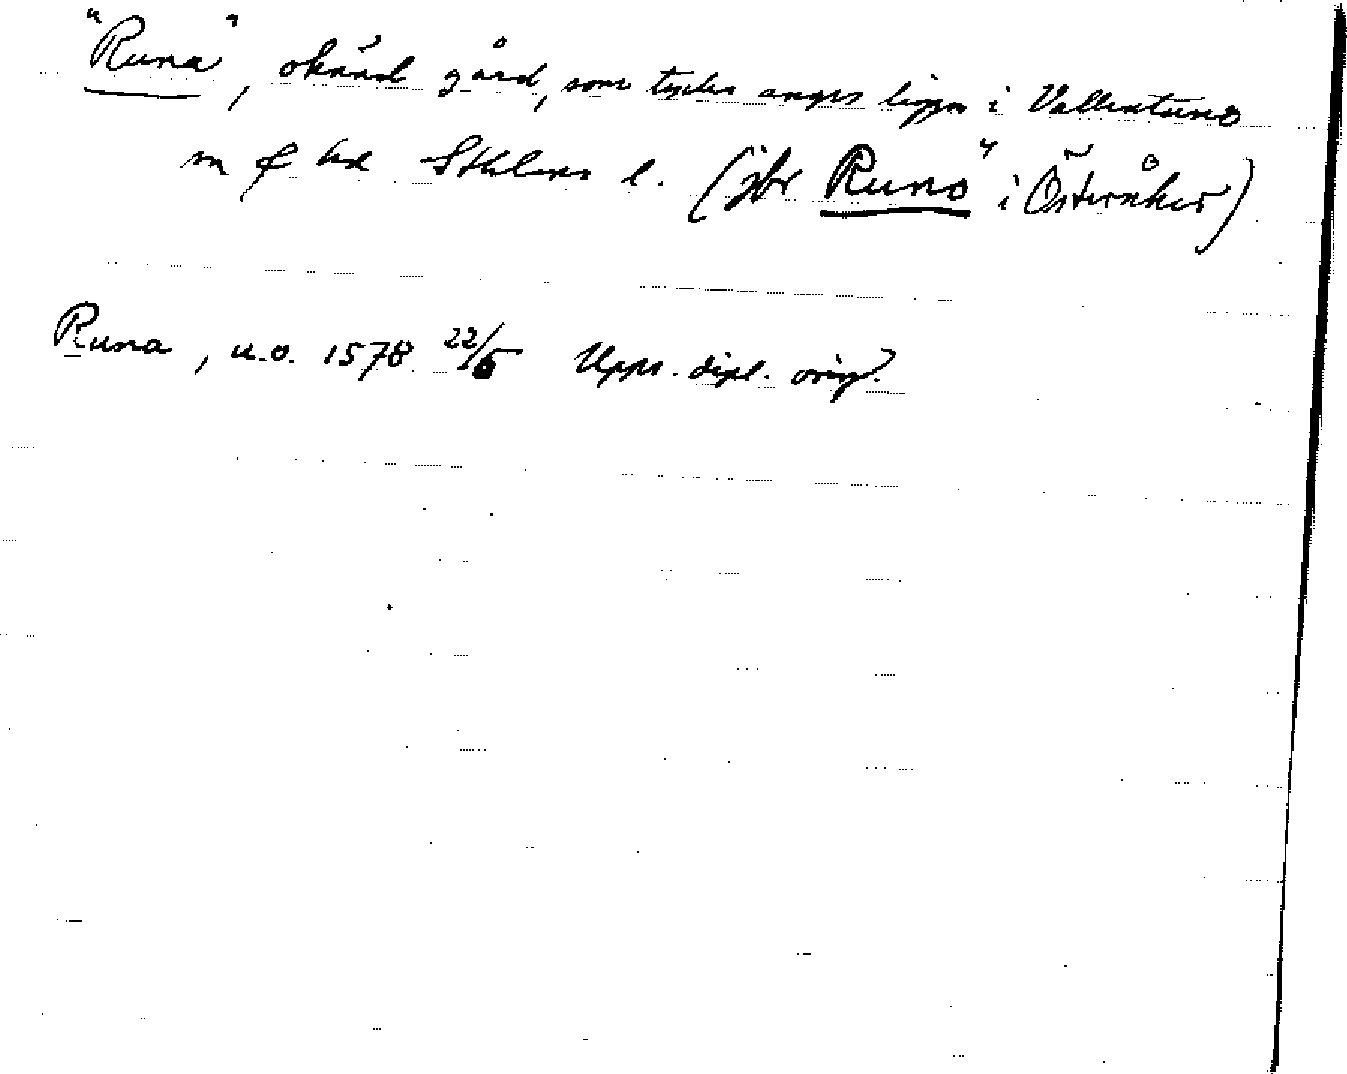 "Runa", okänd gård, som tycks anges ligga i Vallentuna
sn o hd Sthlms l. (jfr "Runö" i Österåker)
Runa, u.o. 1578 22/5 Upps. dipl. orig.